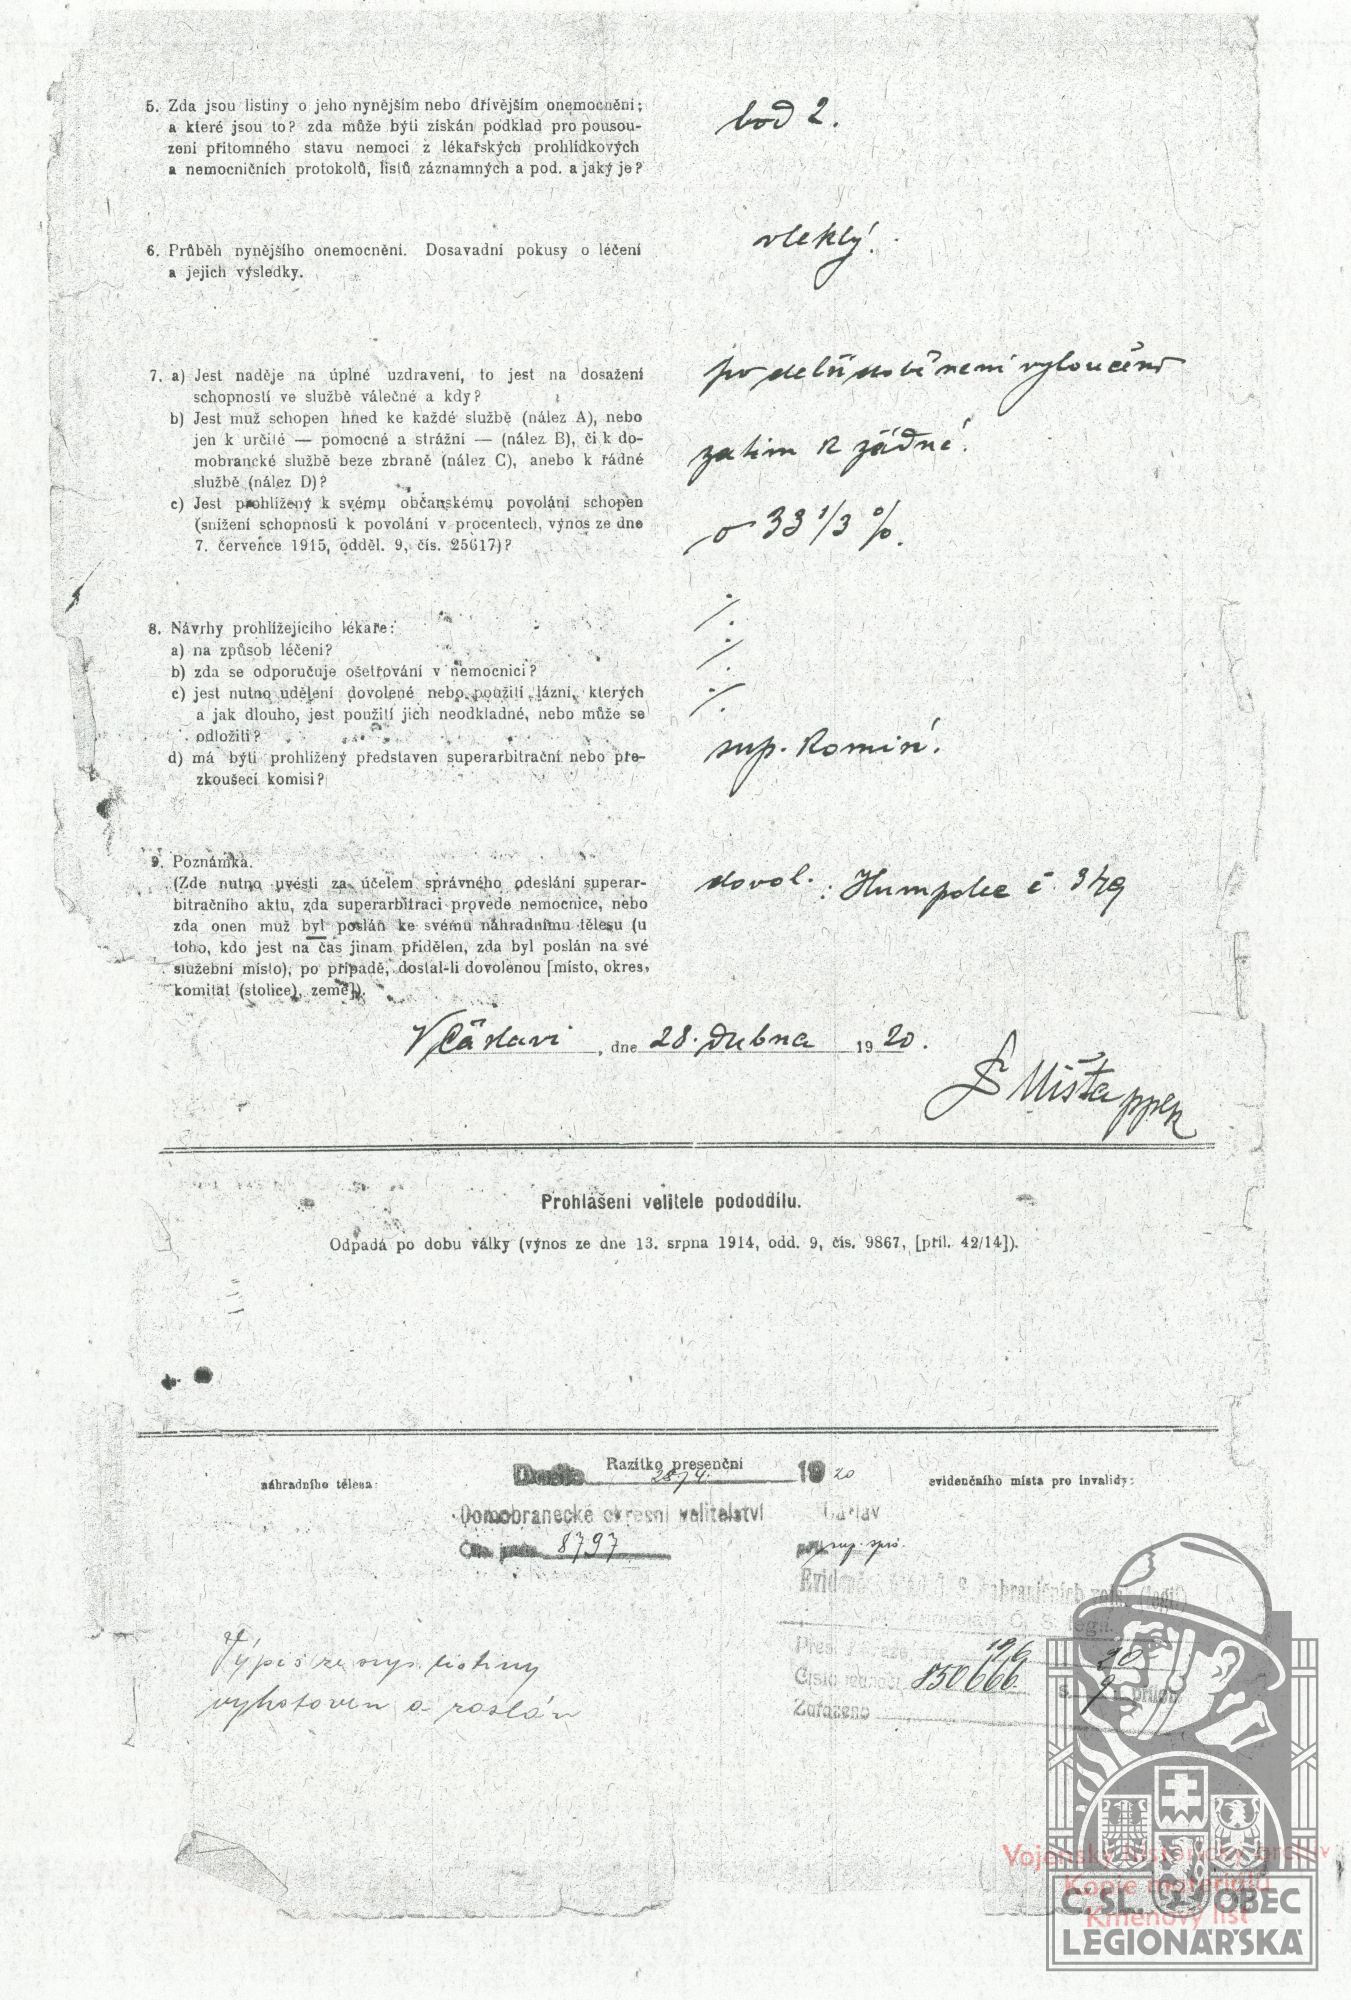 5. Zda jsou listiny o jeho nynějším nebo dřívějším onemocnění;
a které jsou to? zda může býti získán podklad pro pousou-
zení přítomného stavu nemoci z lékařských prohlídkových
a nemocničních protokolů, listů záznamných a pod. a jaký je?
bod 2.
6. Průběh nynějšího onemocnění. Dosavadní pokusy o léčení
a jejich výsledky.
vleklý.
7. a) Jest naděje na úplné uzdravení, to jest na dosažení
schopnosti ve službě válečné a kdy?
po delší době není vyloučeno
b) Jest muž schopen hned ke každé službě (nález A), nebo
jen k určité — pomocné a strážní — (nález B), či k do-
mobrancké službě beze zbraně (nález C), anebo k řádné
službě (nález D)?
zatim k žádné.
c) Jest prohlížený k svému občanskému povolání schopen
(snížení schopnosti k povolání v procentech, výnos ze dne
7. července 1915, odděl. 9, čís. 25617)?
o 33 1/3 %.
8. Návrhy prohlížejícího lékaře:
a) na způsob léčení?
b) zda se odporučuje ošetřování v nemocnici?
c) jest nutno udělení dovolené nebo použití lázní, kterých
a jak dlouho, jest použití jich neodkladné, nebo může se
odložiti?
d) má býti prohlížený představen superarbitrační nebo pře-
zkoušecí komisi?
sup. komisi.
9. Poznámka.
(Zde nutno uvésti za účelem správného odeslání superar-
bitračního aktu, zda superarbitraci provede nemocnice, nebo
zda onen muž byl poslán ke svému náhradnímu tělesu (u
toho, kdo jest na čas jinam přidělen, zda byl poslán na své
služební místo), po případě, dostal-li dovolenou [místo, okres,
komitat (stolice), země]).
dovol. : Humpolec č. 349
V Čáslavi, dne 28. dubna 1920.
Dr Mišta pplk
Prohlášení velitele pododdílu.
Odpadá po dobu války (výnos ze dne 13. srpna 1914, odd. 9, čís. 9867, [příl. 42/14]).
Razítko presenční
náhradního tělesa:
evidenčního místa pro invalidy:
Došlo 28/4. 1920
Domobranecké okresní velitelství Čáslav
Čís. jedn. 8797
Pres.
Číslo jednací 850666.
Zařazeno
Výpis ze sup. listiny
vyhotoven a zaslán
Vojenský historický archiv
Kopie materiálu
Kmenový list
Č.SL. OBEC
LEGIONÁŘSKÁ